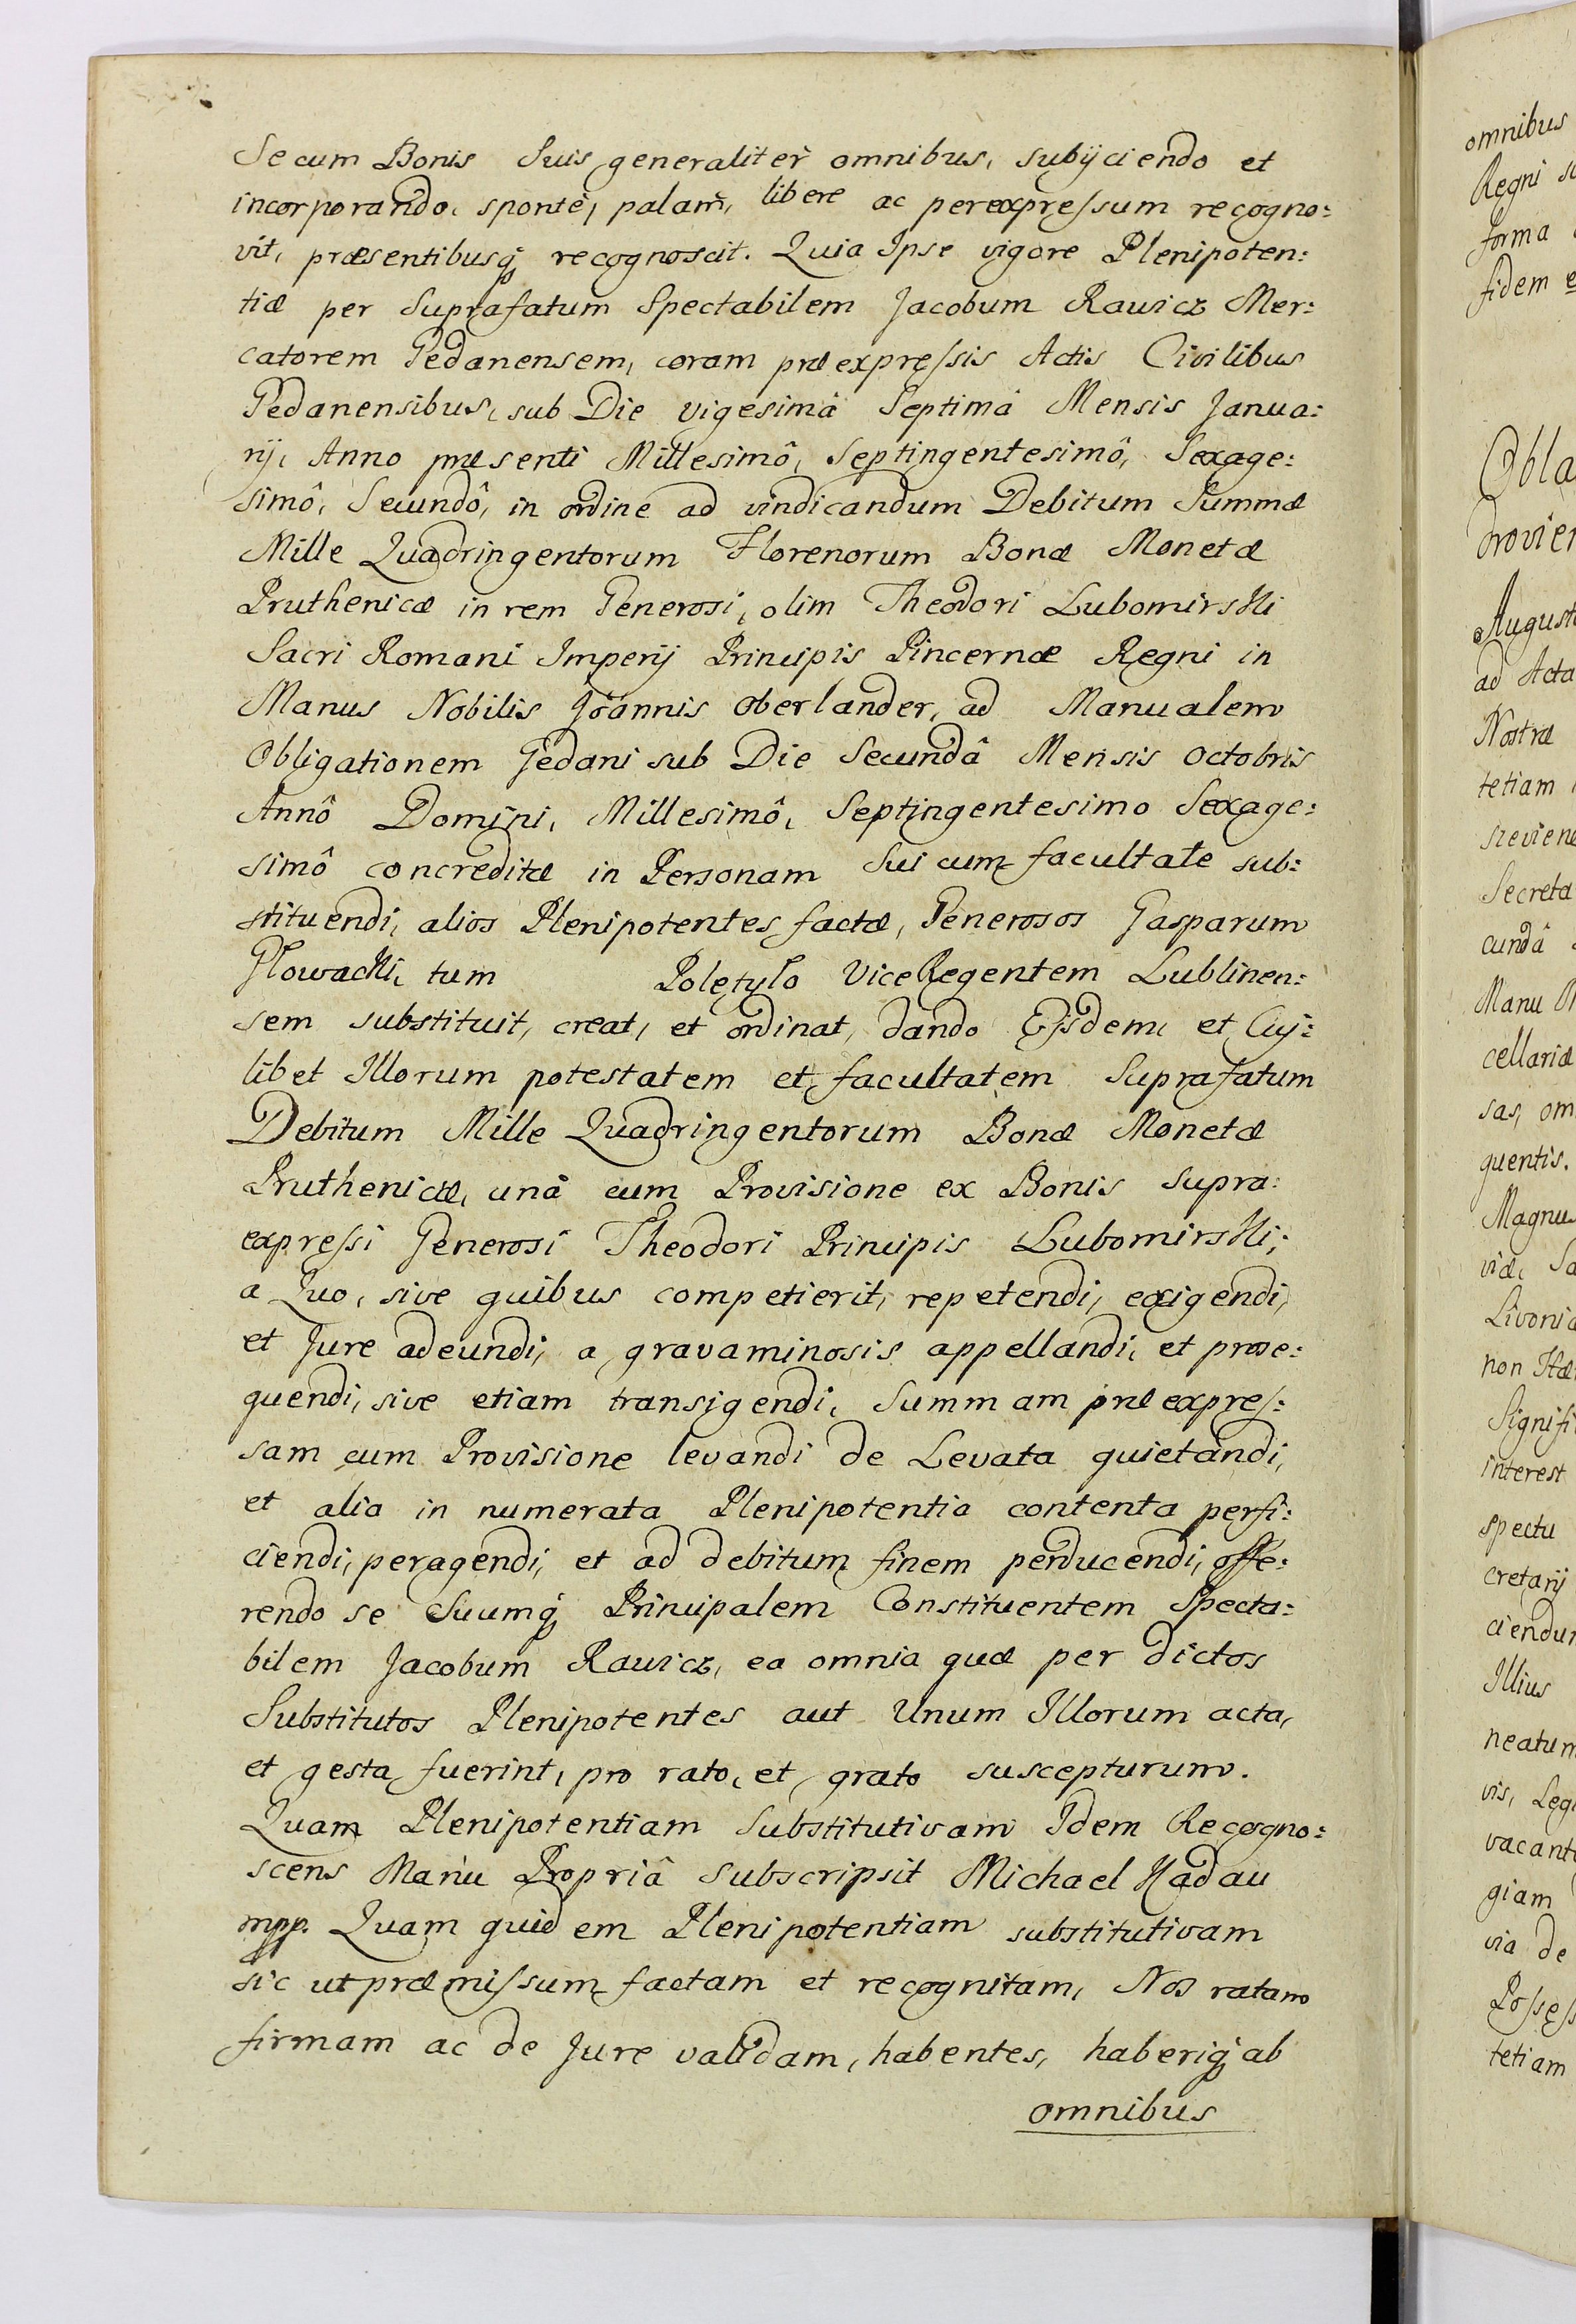 Se cum Bonis Suis generaliter omnibus, subijciendo et
incorporando, sponte, palam, libere ac perexpressum recogno:
vit, præsentibusq recognoscit. Quia Ipse vigore Plenipoten:
tiæ per Suprafatum Spectabilem Jacobum Rawicz Mer:
catorem Gedanensem, coram præexpressis Actis Civilibus
Gedanensibus, sub Die vigesimâ Septimâ Mensis Janua:
rij, Anno præsenti Millesimô, Septingentesimô, Sexage:
simô, Secundô, in ordine ad vindicandum Debitum Summæ
Mille Quadringentorum Florenorum Bonæ Monetæ
Pruthenicæ in rem Generosi, olim Theodori Lubomirski
Sacri Romani Imperij Principis Pincernæ Regni in
Manus Nobilis Joannis Oberlander, ad Manualem
Obligationem Gedani sub Die Secundâ Mensis Octobris
Annô Domini, Millesimô, Septingentesimo Sexage:
simô concreditæ in Personam Sui cum facultate sub:
stituendi, alios Plenipotentes factæ, Generosos Gasparum
Głowacki, tum Poletyło ViceRegentem Lublinen:
sem substituit, creat, et ordinat, dando Eisdem, et Cuj:
libet Illorum potestatem et facultatem Suprafatum
Debitum Mille Quadringentorum Bonæ Monetæ
Pruthenicæ, unâ cum Provisione ex Bonis supra:
expressi Generosi Theodori Principis Lubomirski;
a Quo, sive quibus competierit, repetendi, exigendi,
et Jure adeundi, a gravaminosis appellandi, et prose:
quendi, sive etiam transigendi, Summam præexpres:
sam cum Provisione levandi de Levata quietandi,
et alia in numerata Plenipotentia contenta perfi:
ciendi, peragendi, et ad debitum finem perducendi, offe:
rendo se Suumq Principalem Constituentem Specta:
bilem Jacobum Rawicz, ea omnia quæ per dictos
Substitutos Plenipotentes aut Unum Illorum acta,
et gesta fuerint, pro rato, et grato suscepturum.
Quam Plenipotentiam Substitutivam Idem Recogno:
scens Manu Propriâ Subscripsit Michael Hadau
mpp. Quam quidem Plenipotentiam substitutivam
sic ut præmissum factam et recognitam, Nos ratam
firmam ac de Jure validam, habentes, haberiq ab
omnibus
omnibus
Regni
forma
fidem
Obla
Augusti
ad Acta
Nostræ
tetiam
Secreta
cundâ
Manu
cellariæ
sas, om
quentis.
Magnus
viæ,
Livoniæ
non
Signifi
interest
spectu
cretarij
Illius
neatum
vis, Leg
vacant
giam
via de
Possess
tetiam